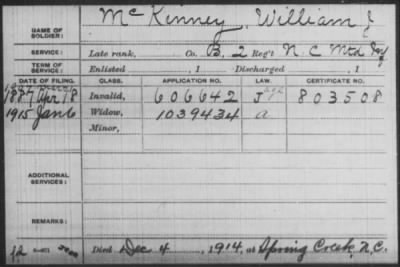 NAME OF SOLDIER: McKinney, William J
SERVICE: Late rank, Co. B, 2 Reg't N C Mtd Inf
TERM OF SERVICE: Enlisted , 1 Discharged , 1
DATE OF FILING. CLASS. APPLICATION NO. LAW. CERTIFICATE NO.
1887 Apr 18 Invalid, 606642 J 803508
1915 Jan 6 Widow, 1039434 a
Minor,
ADDITIONAL SERVICES:
REMARKS:
Died Dec 4, 1914, at Spring Creek, N.C.